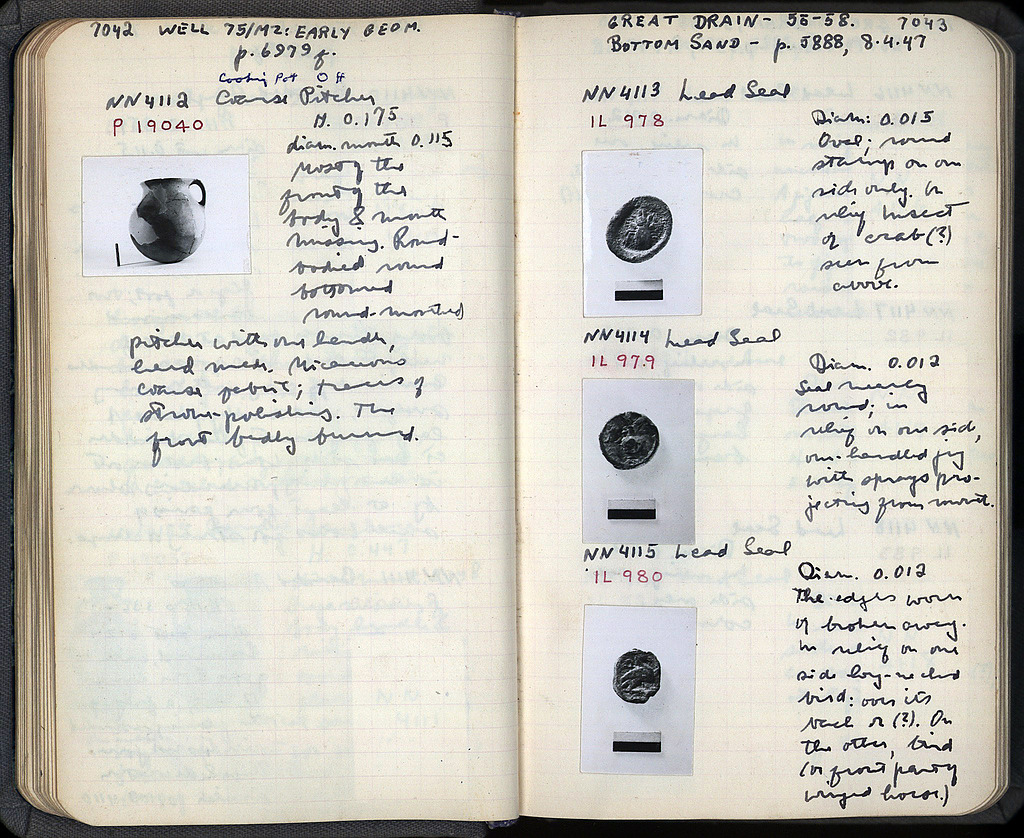 7042 WELL 75/M2: EARLY GEOM.
p. 6979 f.
Cooking Pot
NN4112 Coarse Pitcher
P 19040
H. 0.175
diam. mouth 0.115
most of the
front of the
body & mouth
missing. Round-
bodied round
bottomed
round-mouthed
pitcher with one handle,
hand made. Micaceous
coarse fabric; traces of
stroke-polishing. The
front badly burned.
GREAT DRAIN - 56-58. 7043
BOTTOM SAND - p. 5888, 8.4.47
NN4113 Lead Seal
IL 978
Diam: 0.015
Oval; round
stamp on one
side only. In
relief insect
or crab(?)
seen from
above.
NN4114 Lead Seal
IL 979
Diam. 0.012
Seal nearly
round; in
relief on one side,
one-handled jug
with sprays pro-
jecting from mouth.
NN4115 Lead Seal
IL 980
Diam. 0.012
The edges worn
or broken away.
In relief on one
side long-necked
bird: over its
back (?). On
the other, bird
(or front part of
winged horse.)